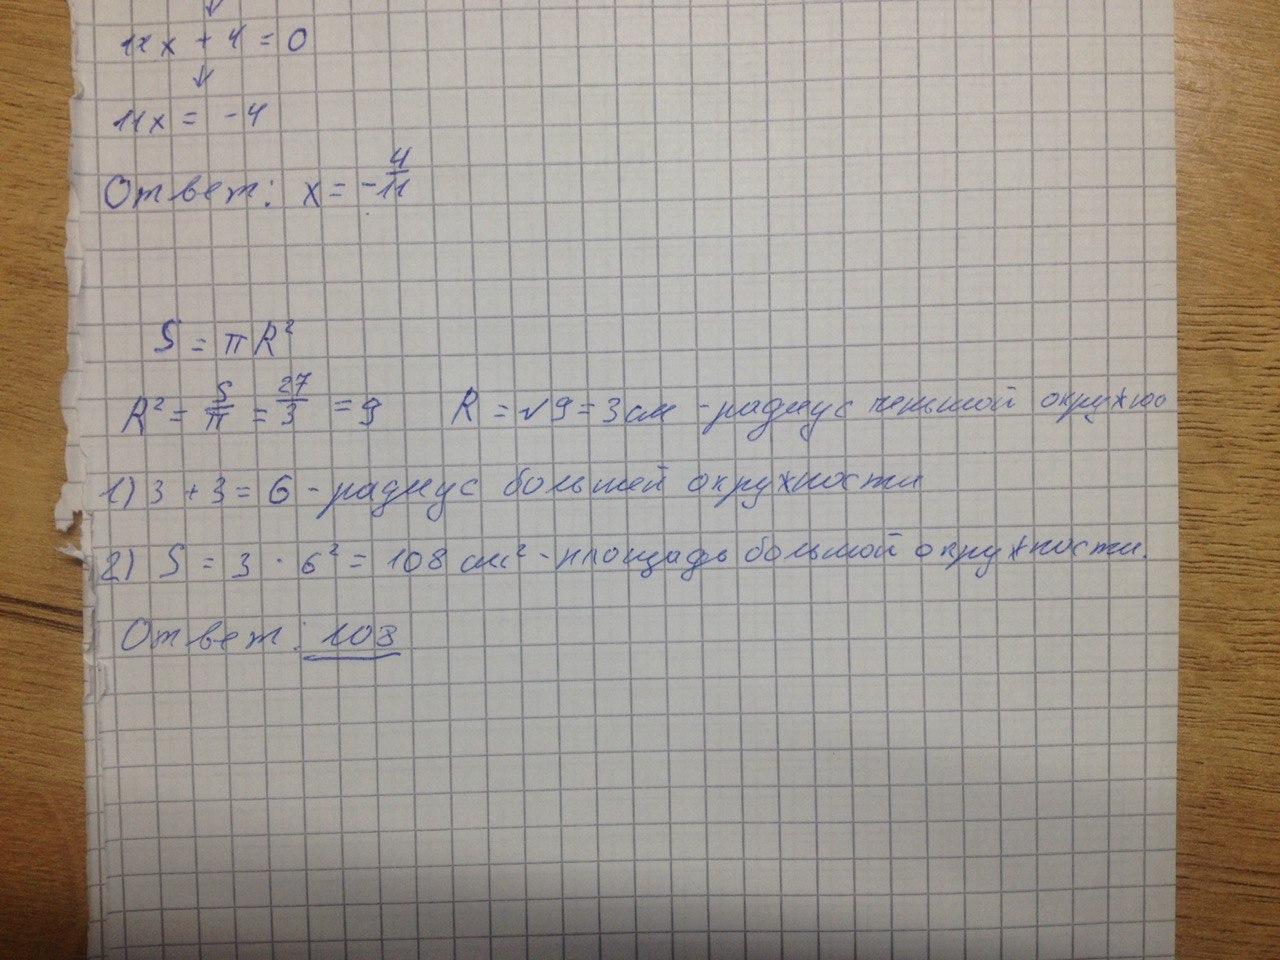 11x + 4 = 0
11x = -4
Ответ: x = -4/11
S = πR²
R² = S/π = 27/3 = 9 R = √9 = 3 см - радиус меньшой окружно
1) 3 + 3 = 6 - радиус большей окружности
2) S = 3 · 6² = 108 см² - площадь большой окружности.
Ответ: 108